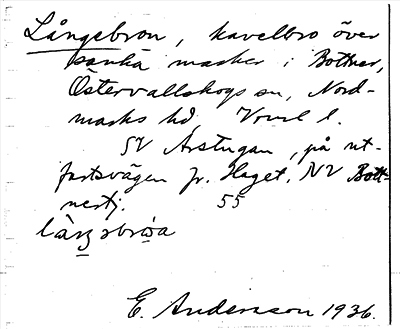 Långebron, kavelbro över
sanka marker i Bottner,
Östervallskogs sn, Nord-
marks hd. Verml l.
SV Årstugan, på ut-
fartsvägen fr. Haget, NV Bott-
nertj. 55
E. Andersson 1936.